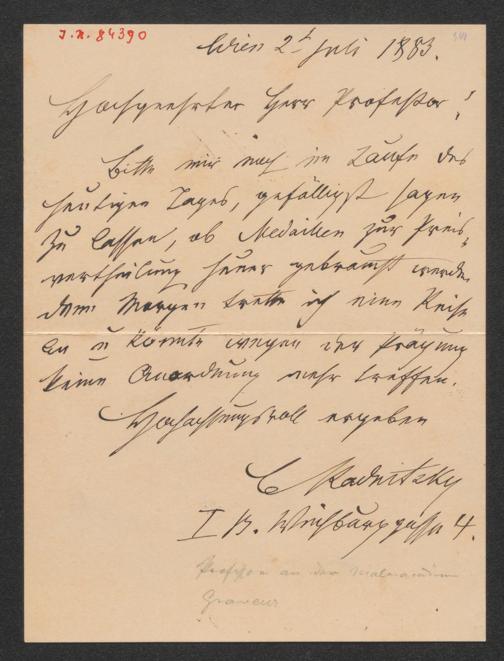 J.N. 84390
Wien 2t Juli 1883.
Hochgeehrter Herr Professor!
Bitte mir noch im Laufe des
heutigen Tages, gefälligst sagen
zu lassen, ob Medaillen zur Preis,
vertheilung heuer gebraucht werden
denn Morgen trette ich eine Reise
an u könnte wegen der Prägung
keine Anordnung mehr treffen.
Hochachtungsvoll ergeben
C Radnitzky
I B. Weihburggasse 4.
Professor an der
Graveur